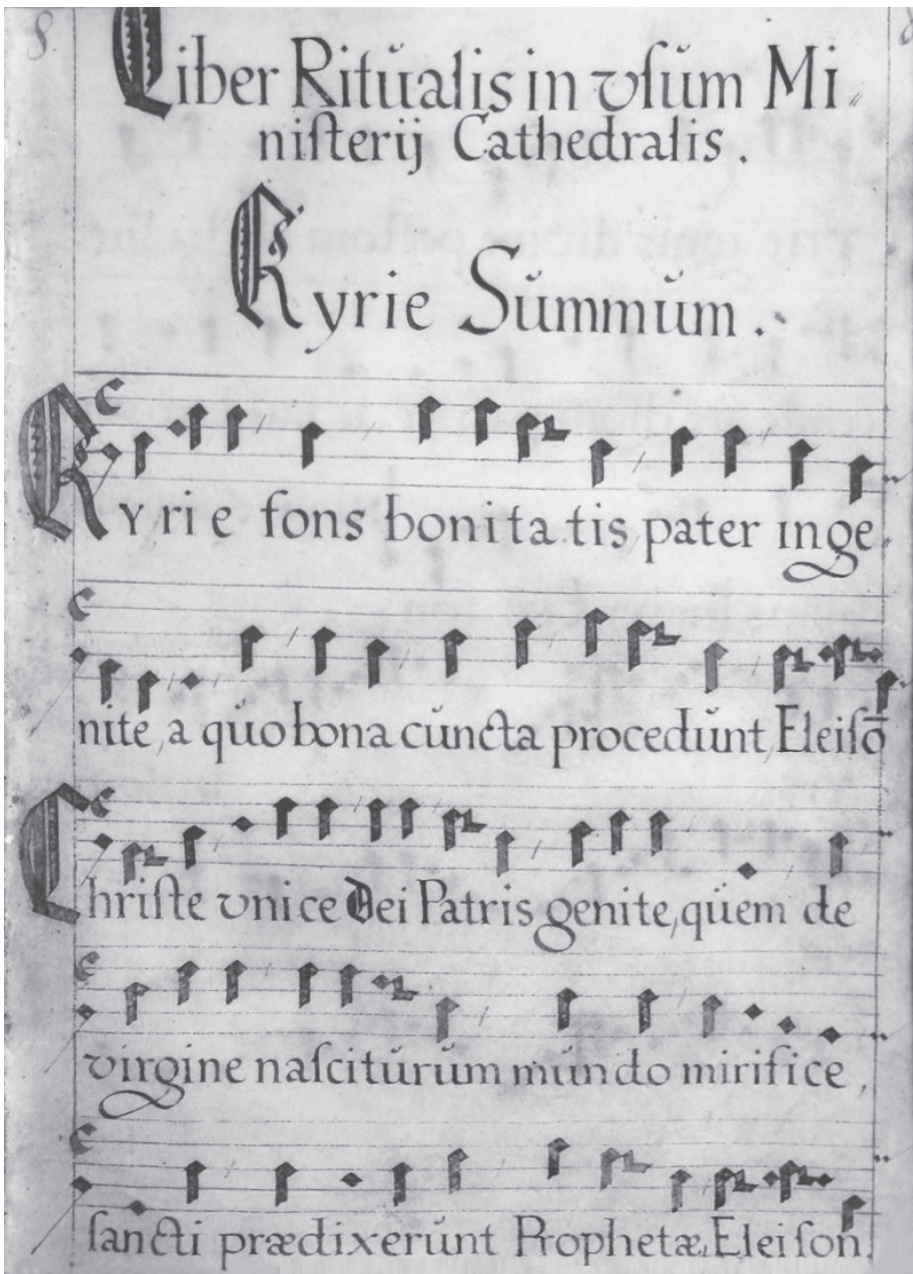 Liber Ritŭalis in vſŭm Mi⸗
niſterij Cathedralis.
Kyrie Sŭmmŭm.
Kyrie fons bonitatis pater inge⸗
nite, a qŭo bona cŭncta procedŭnt, Eleiſō
Chriſte vnice Dei Patris genite, qŭem de
virgine naſcitŭrŭm mŭndo mirifice,
ſancti prædixerŭnt Prophetæ, Eleiſon.